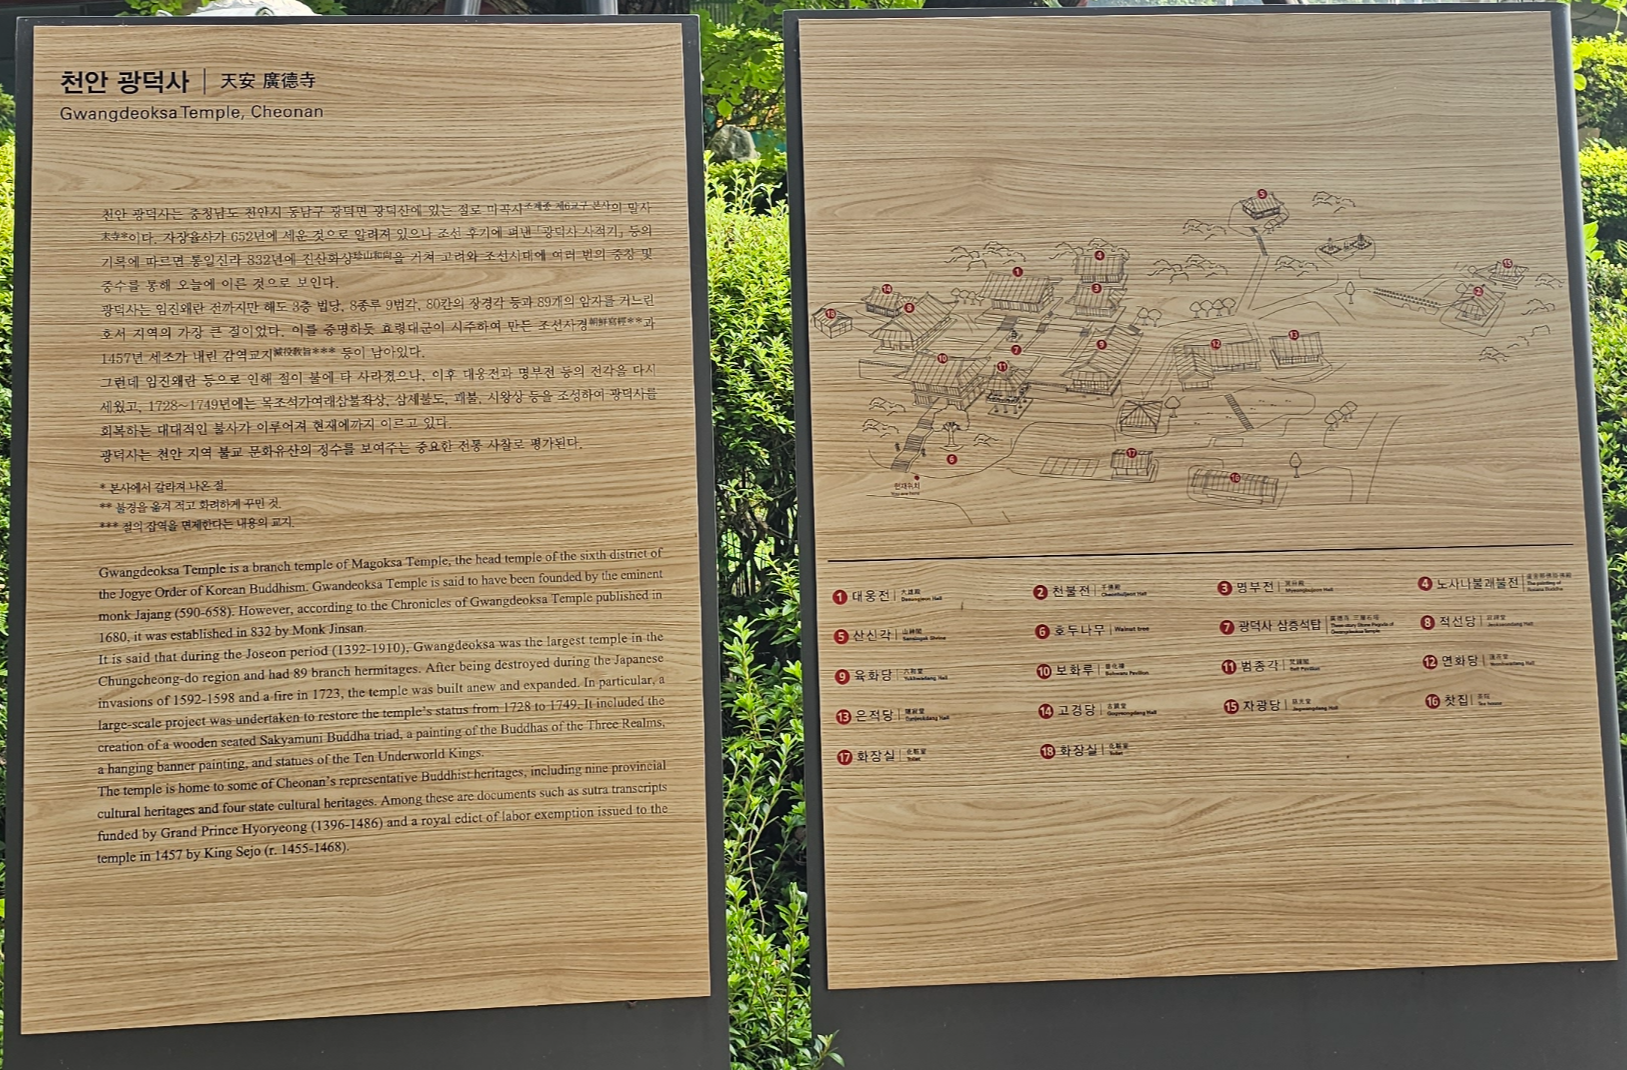 천안 광덕사 | 天安 廣德寺
Gwangdeoksa Temple, Cheonan
천안 광덕사는 충청남도 천안시 동남구 광덕면 광덕산에 있는 절로 마곡사조계종 제6교구 본사의 말사
末寺*이다. 자장율사가 652년에 세운 것으로 알려져 있으나 조선 후기에 펴낸 「광덕사 사적기」 등의
기록에 따르면 통일신라 832년에 진산화상珍山和尙을 거쳐 고려와 조선시대에 여러 번의 중창 및
중수를 통해 오늘에 이른 것으로 보인다.
광덕사는 임진왜란 전까지만 해도 3층 법당, 8종루 9범각, 80칸의 장경각 등과 89개의 암자를 거느린
호서 지역의 가장 큰 절이었다. 이를 증명하듯 효령대군이 시주하여 만든 조선사경朝鮮寫經**과
1457년 세조가 내린 감역교지減役敎旨*** 등이 남아있다.
그런데 임진왜란 등으로 인해 절이 불에 타 사라졌으나, 이후 대웅전과 명부전 등의 전각을 다시
세웠고, 1728~1749년에는 목조석가여래삼불좌상, 삼세불도, 괘불, 시왕상 등을 조성하여 광덕사를
회복하는 대대적인 불사가 이루어져 현재에까지 이르고 있다.
광덕사는 천안 지역 불교 문화유산의 정수를 보여주는 중요한 전통 사찰로 평가된다.
* 본사에서 갈라져 나온 절.
** 불경을 옮겨 적고 화려하게 꾸민 것.
*** 절의 잡역을 면제한다는 내용의 교지.
Gwangdeoksa Temple is a branch temple of Magoksa Temple, the head temple of the sixth district of
the Jogye Order of Korean Buddhism. Gwandeoksa Temple is said to have been founded by the eminent
monk Jajang (590-658). However, according to the Chronicles of Gwangdeoksa Temple published in
1680, it was established in 832 by Monk Jinsan.
It is said that during the Joseon period (1392-1910), Gwangdeoksa was the largest temple in the
Chungcheong-do region and had 89 branch hermitages. After being destroyed during the Japanese
invasions of 1592-1598 and a fire in 1723, the temple was built anew and expanded. In particular, a
large-scale project was undertaken to restore the temple's status from 1728 to 1749. It included the
creation of a wooden seated Sakyamuni Buddha triad, a painting of the Buddhas of the Three Realms,
a hanging banner painting, and statues of the Ten Underworld Kings.
The temple is home to some of Cheonan's representative Buddhist heritages, including nine provincial
cultural heritages and four state cultural heritages. Among these are documents such as sutra transcripts
funded by Grand Prince Hyoryeong (1396-1486) and a royal edict of labor exemption issued to the
temple in 1457 by King Sejo (r. 1455-1468).
5
4
1
15
14
3
2
8
18
7
9
12
13
10
11
17
6
16
현재위치
You are here
1 대웅전 | 大雄殿 Daeungjeon Hall
2 천불전 | 千佛殿 Cheonbuljeon Hall
3 명부전 | 冥府殿 Myeongbujeon Hall
4 노사나불괘불전 | The painting of Rosana Buddha
5 산신각 | 山神閣 Sansingak Shrine
6 호두나무 | Walnut tree
7 광덕사 삼층석탑 | 廣德寺 三層石塔 Three-story Stone Pagoda of Gwangdeoksa Temple
8 적선당 | Jeokseondang Hall
9 육화당 | 六和堂 Yukhwadang Hall
10 보화루 | 普化樓 Bohwaru Pavilion
11 범종각 | 梵鐘閣 Bell Pavilion
12 연화당 | 蓮花堂 Yeonhwadang Hall
13 은적당 | Eunjeokdang Hall
14 고경당 | 古鏡堂 Gogyeongdang Hall
15 자광당 | 慈光堂 Jagwangdang Hall
16 찻집 | Tea house
17 화장실 | 化粧室 Toilet
18 화장실 | 化粧室 Toilet